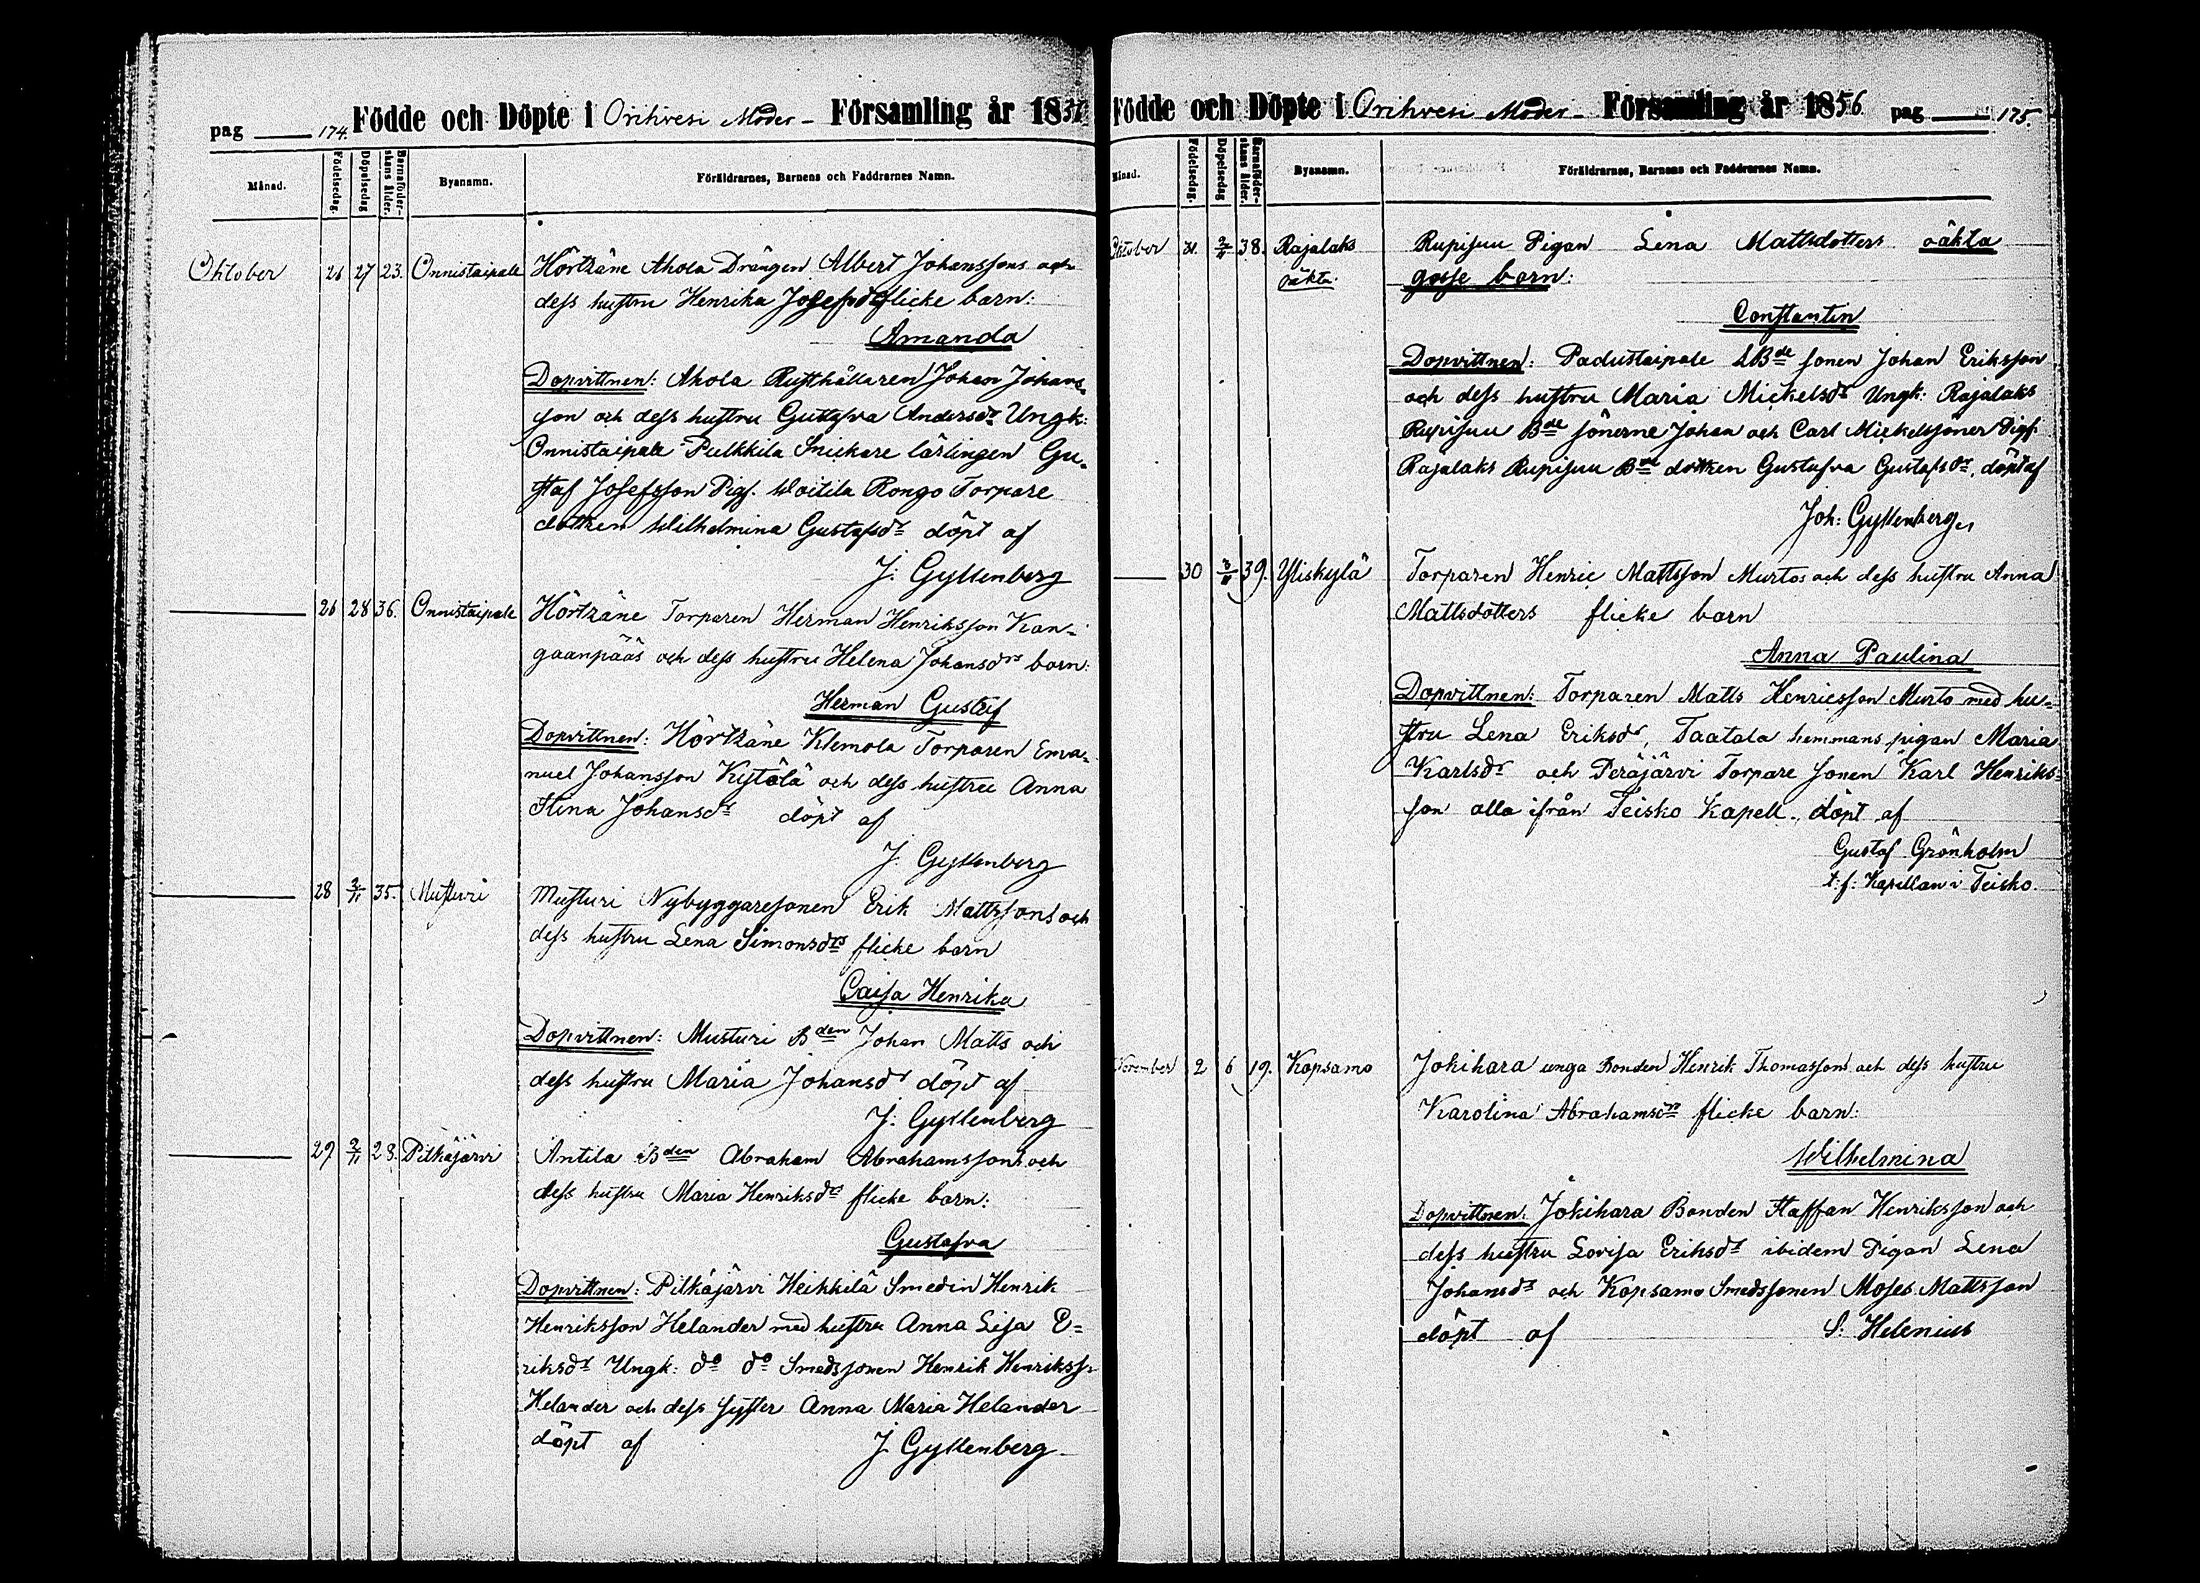 pag 174. Födde och Döpte i Orihvesi Moder- Församling år 18
Månad. Födelsedag. Döpelsedag Barnaföder-skans ålder. Byanamn. Föräldrarnes, Barnens och Faddrarnes Namn.
Oktober 26 27 23. Onnistaipale Hörtzäne Ahola Drängen Albert Johanssons och
dess hustru Henrika Josefsdrs flicke barn:
Amanda
Dopvittnen: Ahola Rusthållaren Johan Johans-
son och dess hustru Gustafva Andersdr Ungk:
Onnistaipale Pulkkila Snickare lärlingen Gu-
staf Josefsson Pigf. Woitila Rongo Torpare
dottren Wilhelmina Gustafsdr döpt af
J: Gyllenberg
26 28 36. Onnistaipale Hörtzäne Torparen Herman Henriksson Kan-
gaanpääs och dess hustru Helena Johansdrs barn:
Herman Gustaf
Dopvittnen: Hörtzäne Klemola Torparen Ema-
nuel Johansson Kytölä och dess hustru Anna
Stina Johansdr döpt af
J. Gyllenberg
28 2/11 35. Musturi Musturi Nybyggaresonen Erik Mattssons och
dess hustru Lena Simonsdrs flicke barn
Caisa Henrika
Dopvittnen: Musturi Bden Johan Matts och
dess hustru Maria Johansdr döpt af
J: Gyllenberg
29 2/11 28. Pitkäjärvi Antila Bden Abraham Abrahamssons och
dess hustru Maria Henriksdrs flicke barn:
Gustafva
Dopvittnen: Pitkäjärvi Heikkilä Smeden Henrik
Henriksson Helander med hustru Anna Lisa E-
riksdr Ungk: do do Smedssonen Henrik Henrikss:
Helander och dess syster Anna Maria Helander
döpt af J. Gyllenberg
Födde och Döpte i Orihvesi Moder- Församling år 1856 pag 175.
Månad. Födelsedag. Döpelsedag Barnaföder-skans ålder. Byanamn. Föräldrarnes, Barnens och Faddrarnes Namn.
Oktober 31. 2/11 38. Rajalaks Rupisuu Pigan Lena Mattsdotters oäkta
oäkta gosse barn:
Constantin
Dopvittnen: Padustaipale LBde sonen Johan Eriksson
och dess hustru Maria Mickelsdr Ungk: Rajalaks
Rupisuu Bde sönerne Johan och Carl Mickelssöner Pigf.
Rajalaks Rupisuu Bde dottren Gustafva Gustafsdr, döpt af
Joh: Gyllenberg
30 3/11 39. Yliskylä Torparen Henric Mattsson Murtos och dess hustru Anna
Mattsdotters flicke barn
Anna Paulina
Dopvittnen: Torparen Matts Henricsson Murto med hu-
stru Lena Eriksdr, Taatala hemmans pigan Maria
Karlsdr och Peräjärvi Torpare sonen Karl Henriks-
son alla ifrån Teisko Kapell. döpt af
Gustaf Grönholm
t: f: Kapellan i Teisko.
November 2 6 19. Kopsamo Jokihara unga Bonden Henrik Thomassons och dess hustru
Karolina Abrahamsdrs flicke barn:
Wilhelmina
Dopvittnen: Jokihara Bonden Staffan Henriksson och
dess hustru Lovisa Eriksdr ibidem Pigan Lena
Johansdr och Kopsamo Smedssonen Moses Mattsson
döpt af S: Helenius